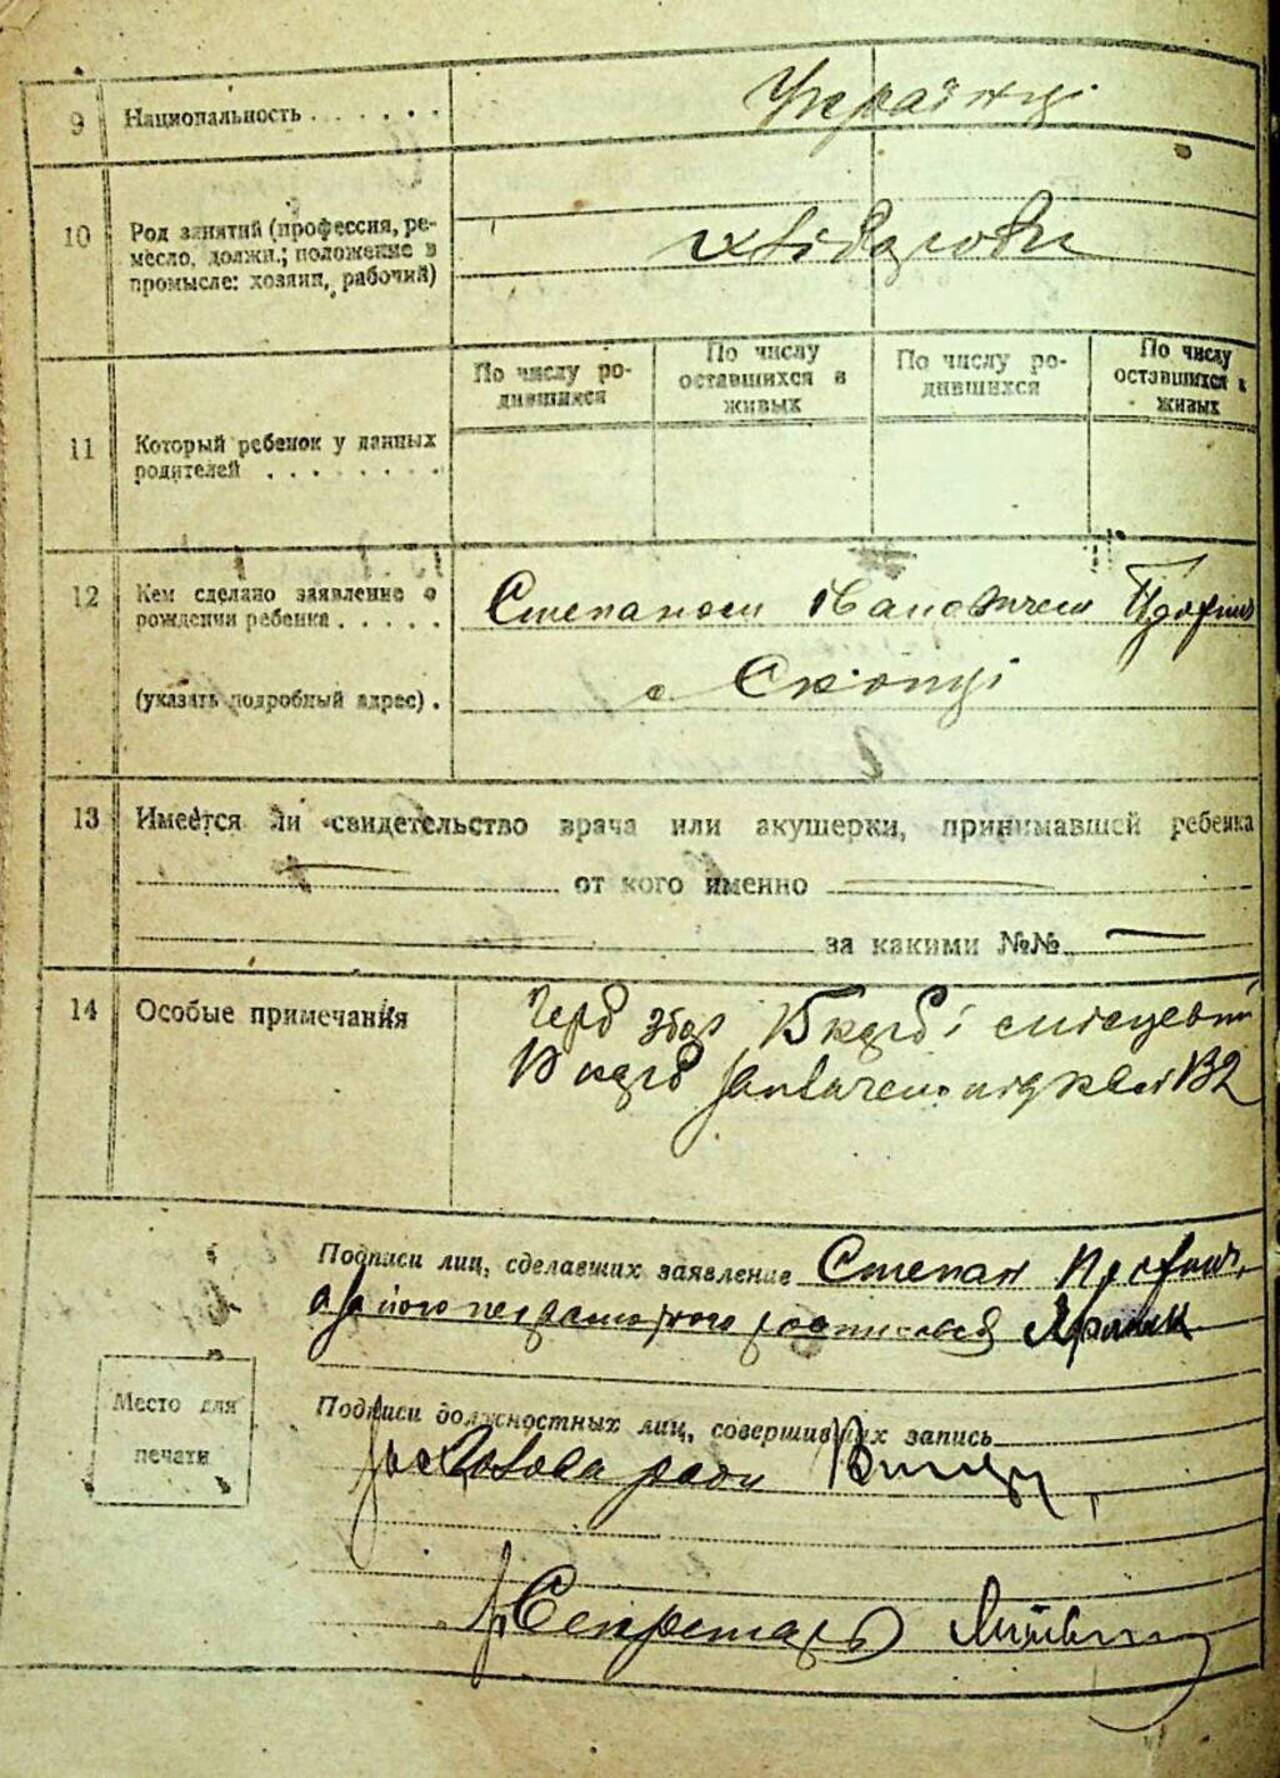 9 Национальность . . . . . . Українці
10 Род занятий (профессия, ре-
месло, должн.; положение в
промысле: хозяин, рабочий)
хлібороби
11 Который ребенок у данных
родителей . . . . . . .
По числу ро-
дившихся
По числу
оставшихся в
живых
По числу ро-
дившихся
По числу
оставшихся в
живых
12 Кем сделано заявление о
рождении ребенка . . . . .
Степаном Івановичем
(указать подробный адрес) .
с Скопці
13 Имеется ли свидетельство врача или акушерки, принимавшей ребенка
от кого именно
за какими №№
14 Особые примечания
Подписи лиц, сделавших заявление Степан
а за його неграмотного росписався
Место для
печати
Подписи должностных лиц, совершивших запись
Голова ради
Секретарь